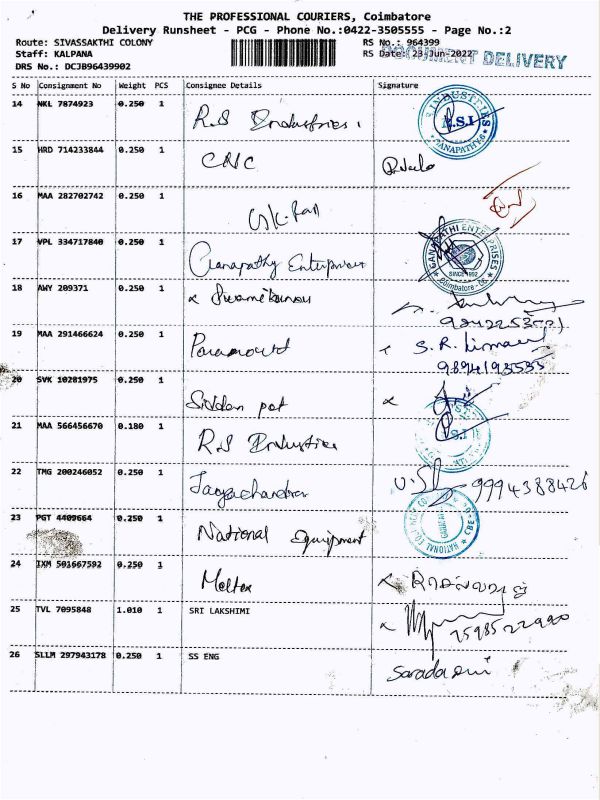 THE PROFESSIONAL COURIERS, Coimbatore
Delivery Runsheet - PCG - Phone No.:0422-3505555 - Page No.:2
Route: SIVASSAKTHI COLONY RS No.: 964399
Staff: KALPANA RS Date: 23-Jun-2022 DOCUMENT DELIVERY
DRS No.: DCJB96439902
S No Consignment No Weight PCS Consignee Details Signature
14 NKL 7874923 0.250 1 R.S Industries. INDUSTRIES R.S.I GANAPATHY-6
15 HRD 714233844 0.250 1 CNC
16 MAA 282702742 0.250 1
17 VPL 334717840 0.250 1 Ganapathy Enterprises GANAPATHI ENTERPRISES SINCE 1992 Coimbatore
18 AWY 209371 0.250 1 x
19 MAA 291466624 0.250 1 Paramount x S.R.
9894193533
20 SVK 10281975 0.250 1 x
21 MAA 566456670 0.180 1 R.S Industries S.I
22 TMG 200246052 0.250 1 Jayachandran 9994388426
23 PGT 4409664 0.250 1 National Equipment NATIONAL CBE
24 IXM 501667592 0.250 1 Meltex x
25 TVL 7095848 1.010 1 SRI LAKSHIMI x
26 SLLM 297943178 0.250 1 SS ENG